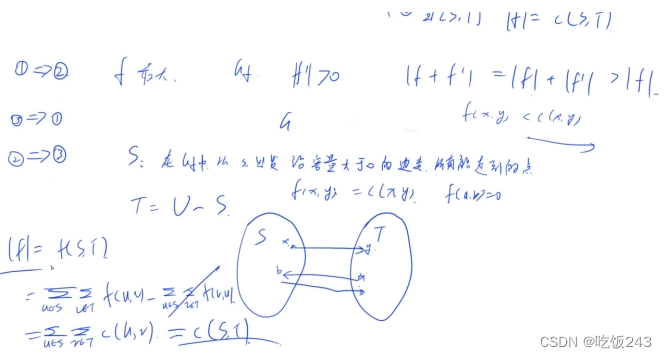 ③ ∃(S,T) |f| = c(S,T)
①⇒② f 最大. Gf. |f'|>0 |f+f'| = |f|+|f'| > |f|
③⇒① G f(x,y) < c(x,y)
②⇒③ S: 在Gf中, 从s出发, 沿容量大于0的边走, 所有能走到的点
T = V - S. f(x,y) = c(x,y) f(a,b)=0
S T
x y
b a
|f| = f(S,T)
= ∑u∈S ∑v∈T f(u,v) - ∑u∈S ∑v∈T f(v,u)
= ∑u∈S ∑v∈T c(u,v) = c(S,T)
CSDN @吃饭243